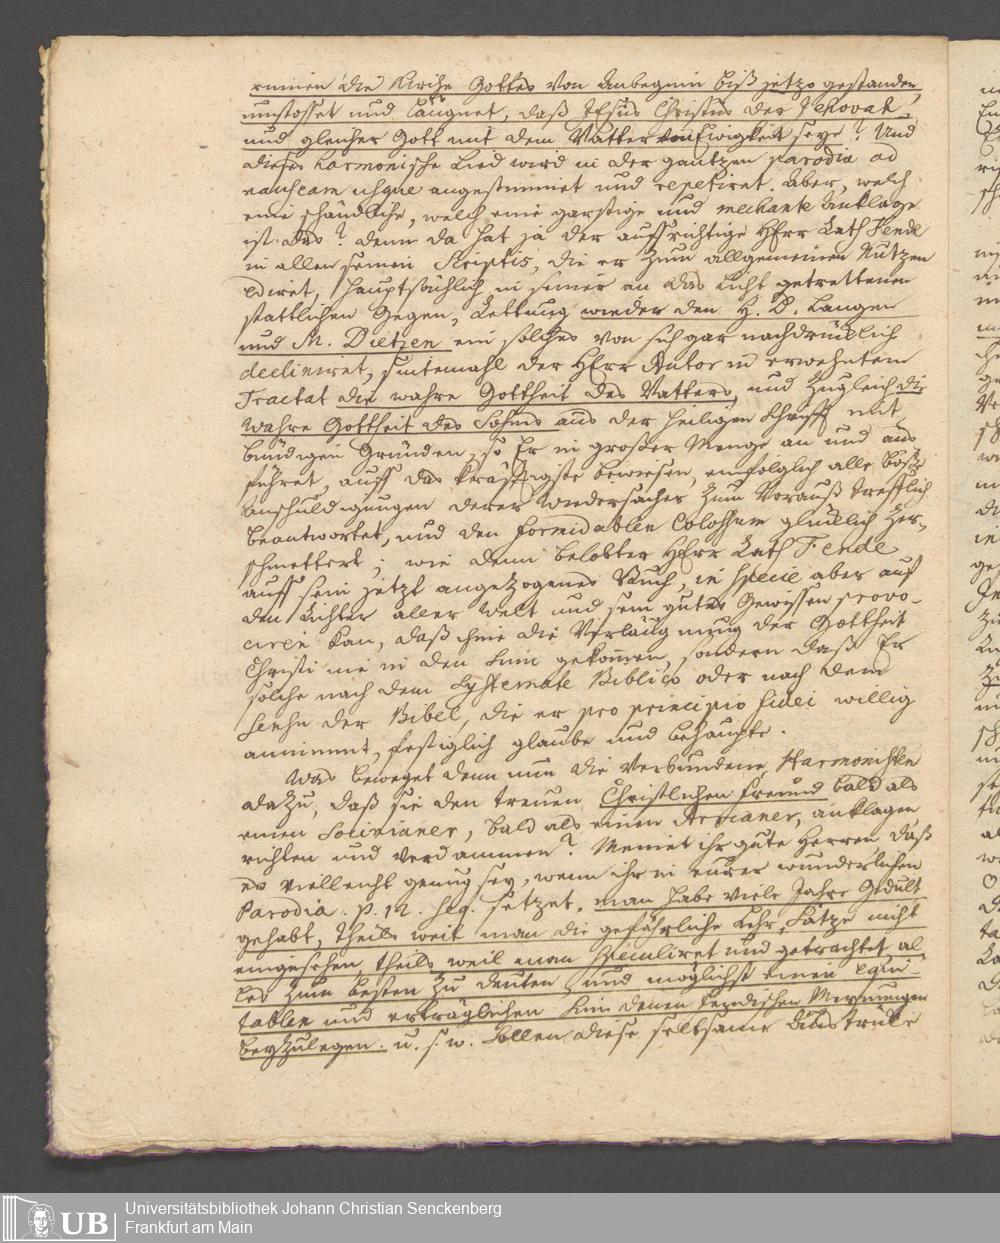 rinnen die Kirche Gottes von Anbeginn biß jetzo gestanden,
umstosset und läugnet, daß JEsus Christus der Jehovah
und gleicher Gott mit dem Vatter von Ewigkeit seye? Und
dieses harmonische Lied wird in der gantzen Parodia ad
nauseam usque angestimmet und repetiret. Aber, welch
eine schändliche, welch eine garstige und mechante Anklage
ist das? denn da hat ja der auffrichtige HErr Rath Fende
in allen seinen Scriptis, die er zum allgemeinen Nutzen
ediret, hauptsächlich in seiner an das Licht getrettenen
stattlichen Gegen-Rettung wieder den H. D. Langen
und M. Dietzen ein solches von sich gar nachdrücklich
decliniret, sintemahl der HErr Autor in erwehntem
Tractat die wahre Gottheit des Vatters, und zugleich die
wahre Gottheit des Sohns aus der Heiligen Schrifft mit
bündigen Gründen, so Er in großer Menge an und aus
führet, auff das kräfftigste bewiesen, einfolglich alle böse
Anschuldigungen derer Wiedersacher zum Vorauß trefflich
beantwortet, und den formidablen Colossum glücklich zer-
schmettert; wie denn belobter HErr Rath Fende
auff sein jetzt angezogenes Buch, in specie aber auf
den Richter aller Welt und sein gutes Gewissen provo-
ciren kan, daß ihme die Verläugnung der Gottheit
Christi nie in den Sinn gekom̅en, sondern daß Er
solche nach dem Systemate Biblico oder nach dem
Sinn der Bibel, die er pro principio fidei willig
annimmt, festiglich glaube und behaupte.
Was beweget denn nun die verbundene Harmonisten
dazu, daß sie den treuen Christlichen Freund bald als
einen Socinianer, bald als einen Arrianer, anklagen
richten und verdammen? Meinet ihr gute Herren daß
es vielleicht genug sey, wenn ihr in eurer wunderlichen
Parodia. p. 12. seq. setzet, man habe viele Jahre Gedult
gehabt, theils weil man die gefährliche Lehr-Sätze nicht
eingesehen, theils weil man speculiret und getrachtet al-
les zum besten zu deuten und möglichst einen equi-
tablen und erträglichen Sinn denen Fendischen Meynungen
beyzulegen. u. s. w. Sollen diese seltsame Ausdrücke
Universitätsbibliothek Johann Christian Senckenberg
Frankfurt am Main
UB